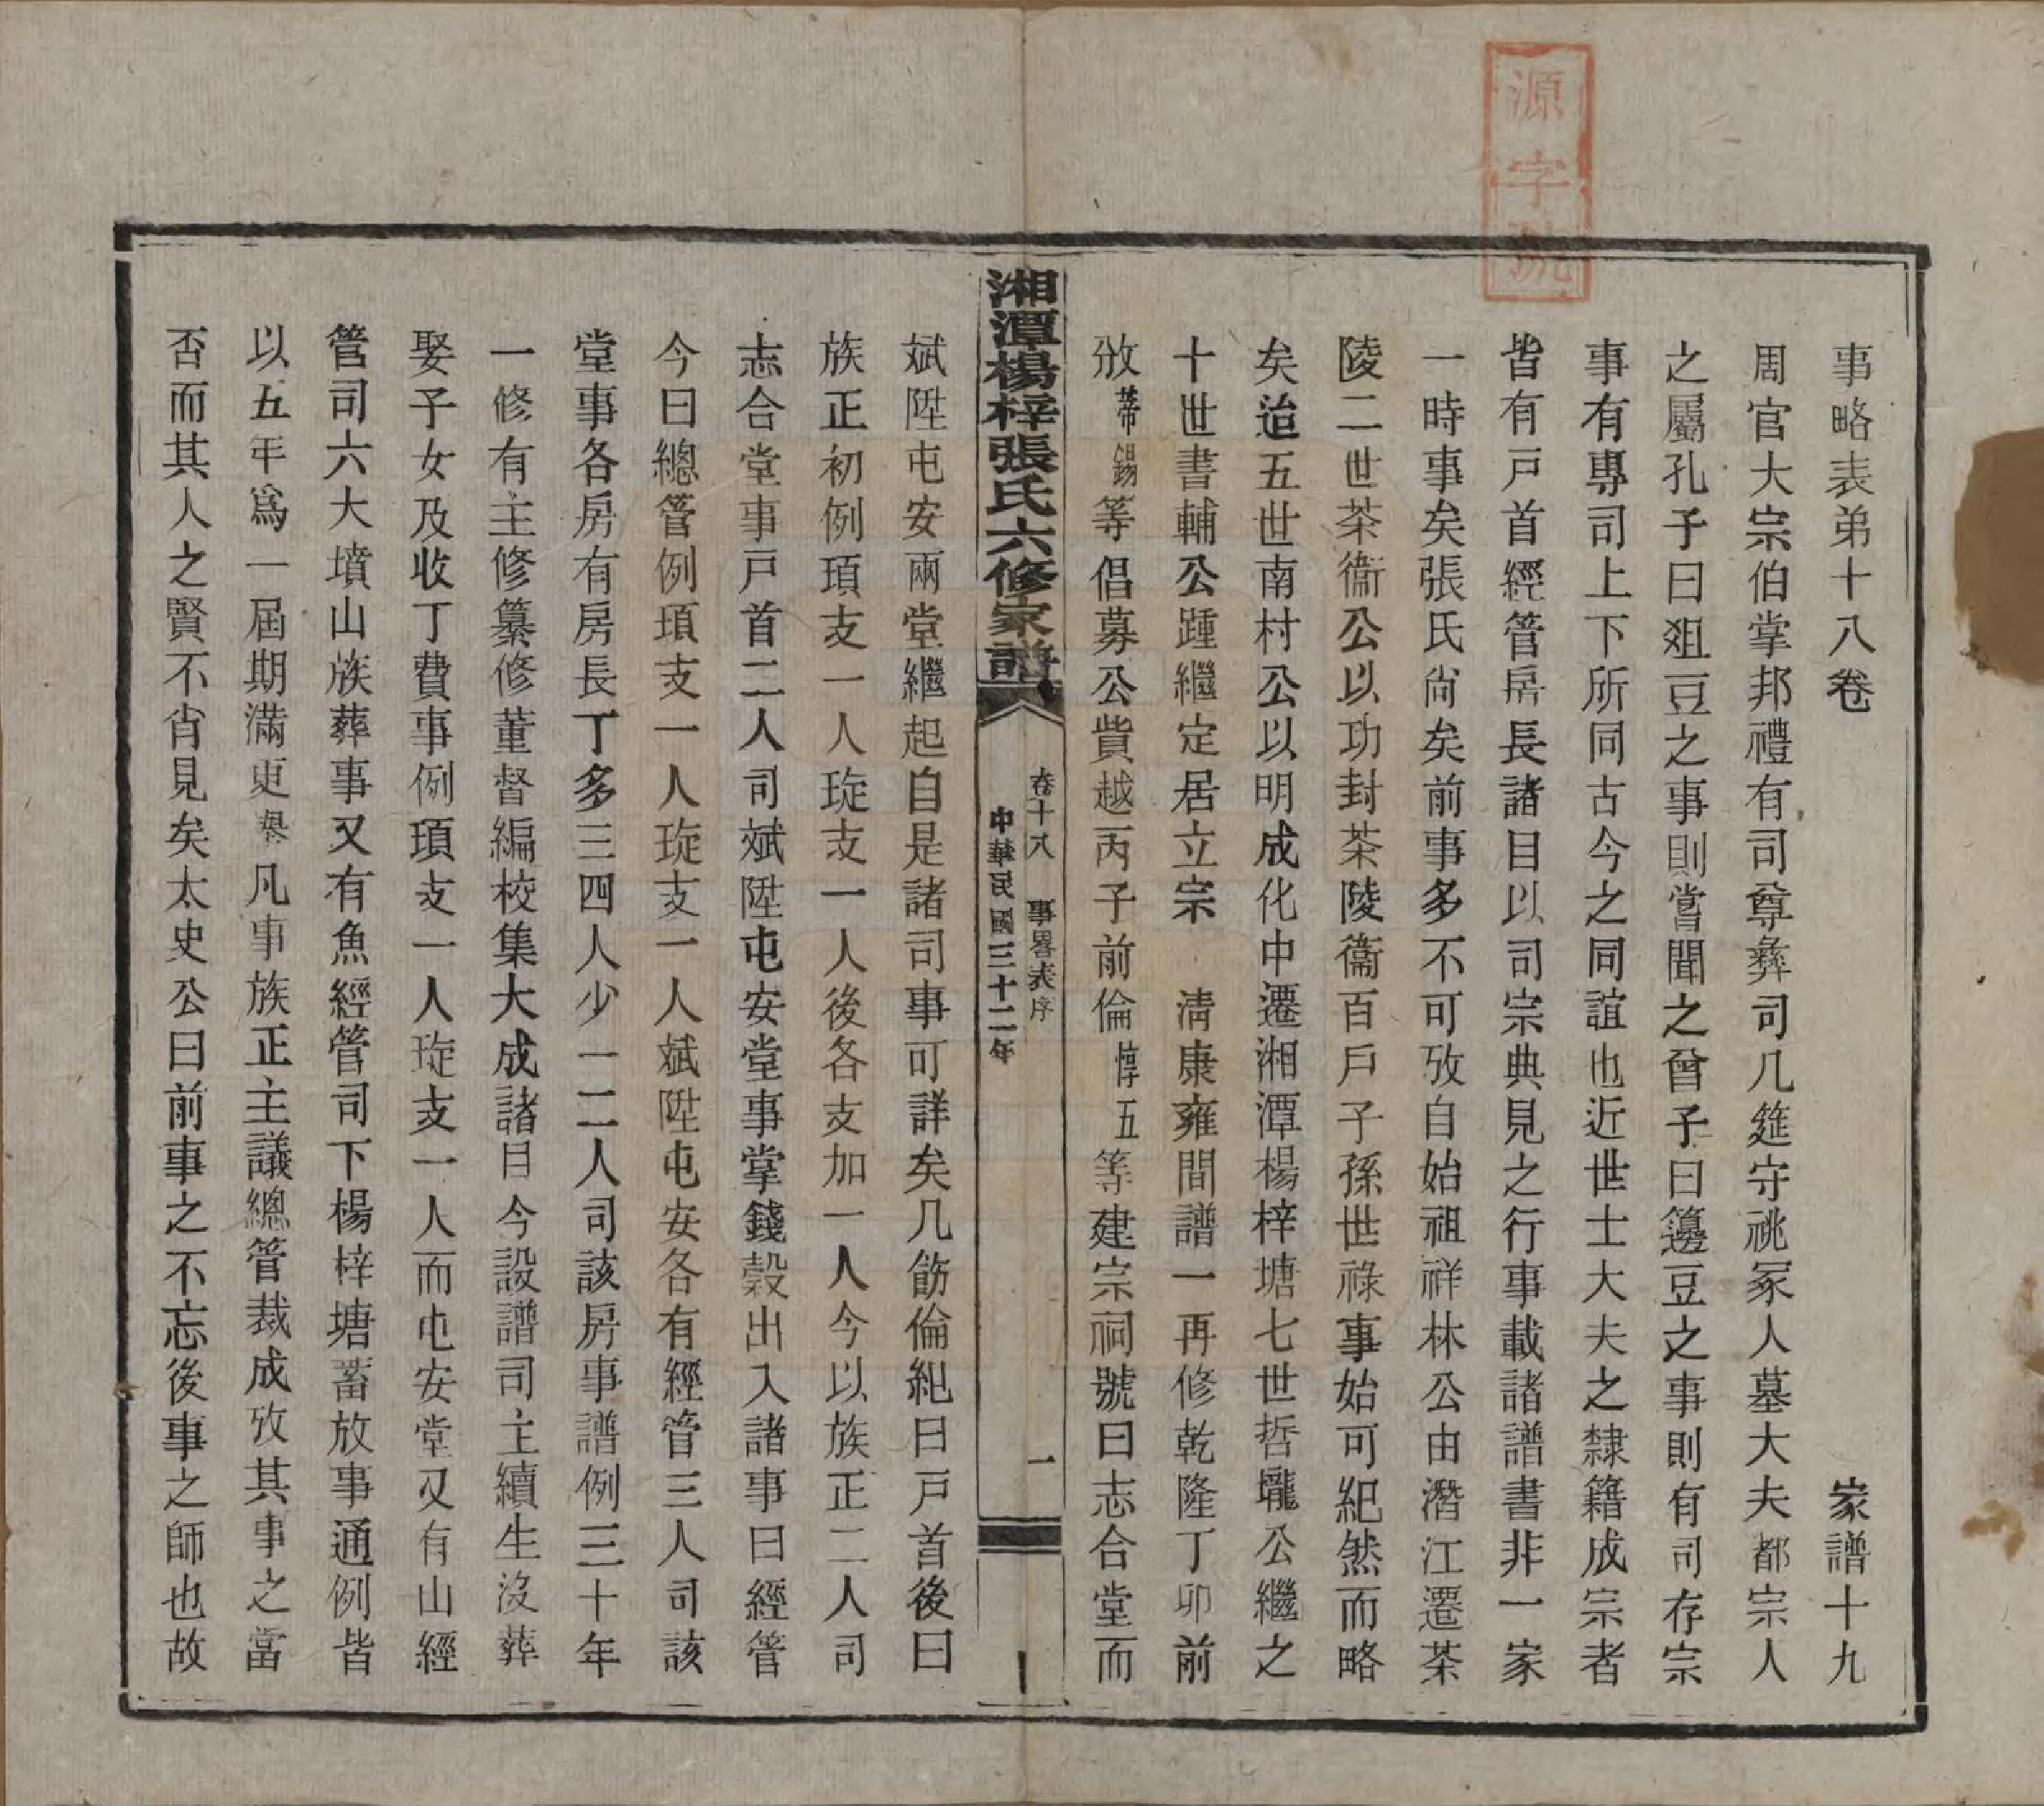 源字號
事略表弟十八卷 家譜十九
周官大宗伯掌邦禮有司尊彝司几筵守祧冢人墓大夫都宗人
之屬孔子曰爼豆之事則嘗聞之曾子曰籩豆之事則有司存宗
事有專司上下所同古今之同誼也近世士大夫之隸籍成宗者
皆有戸首經管房長諸目以司宗典見之行事載諸譜書非一家
一時事矣張氏尙矣前事多不可攷自始祖祥林公由潛江遷茶
陵二世茶衞公以功封茶陵衞百戶子孫世祿事始可紀然而略
矣迨五世南村公以明成化中遷湘潭楊梓塘七世哲壠公繼之
十世書輔公踵繼定居立宗 淸康雍間譜一再修乾隆丁卯前
攽蒂錫等倡募公貲越丙子前倫惇五等建宗祠號曰志合堂而
湘潭楊梓張氏六修家譜 卷十八 事畧表序 一 中華民國三十二年
斌陞屯安兩堂繼起自是諸司事可詳矣凡飭倫紀曰戸首後曰
族正初例頊支一人琁支一人後各支加一人今以族正二人司
志合堂事戸首二人司斌陞屯安堂事掌錢穀出入諸事曰經管
今曰總管例頊支一人琁支一人斌陞屯安各有經管三人司該
堂事各房有房長丁多三四人少一二人司該房事譜例三十年
一修有主修纂修董督編校集大成諸目今設譜司主續生沒葬
娶子女及收丁費事例頊支一人琁支一人而屯安堂又有山經
管司六大墳山族葬事又有魚經管司下楊梓塘蓄放事通例皆
以五年爲一屆期滿更舉凡事族正主議總管裁成攷其事之當
否而其人之賢不肖見矣太史公曰前事之不忘後事之師也故